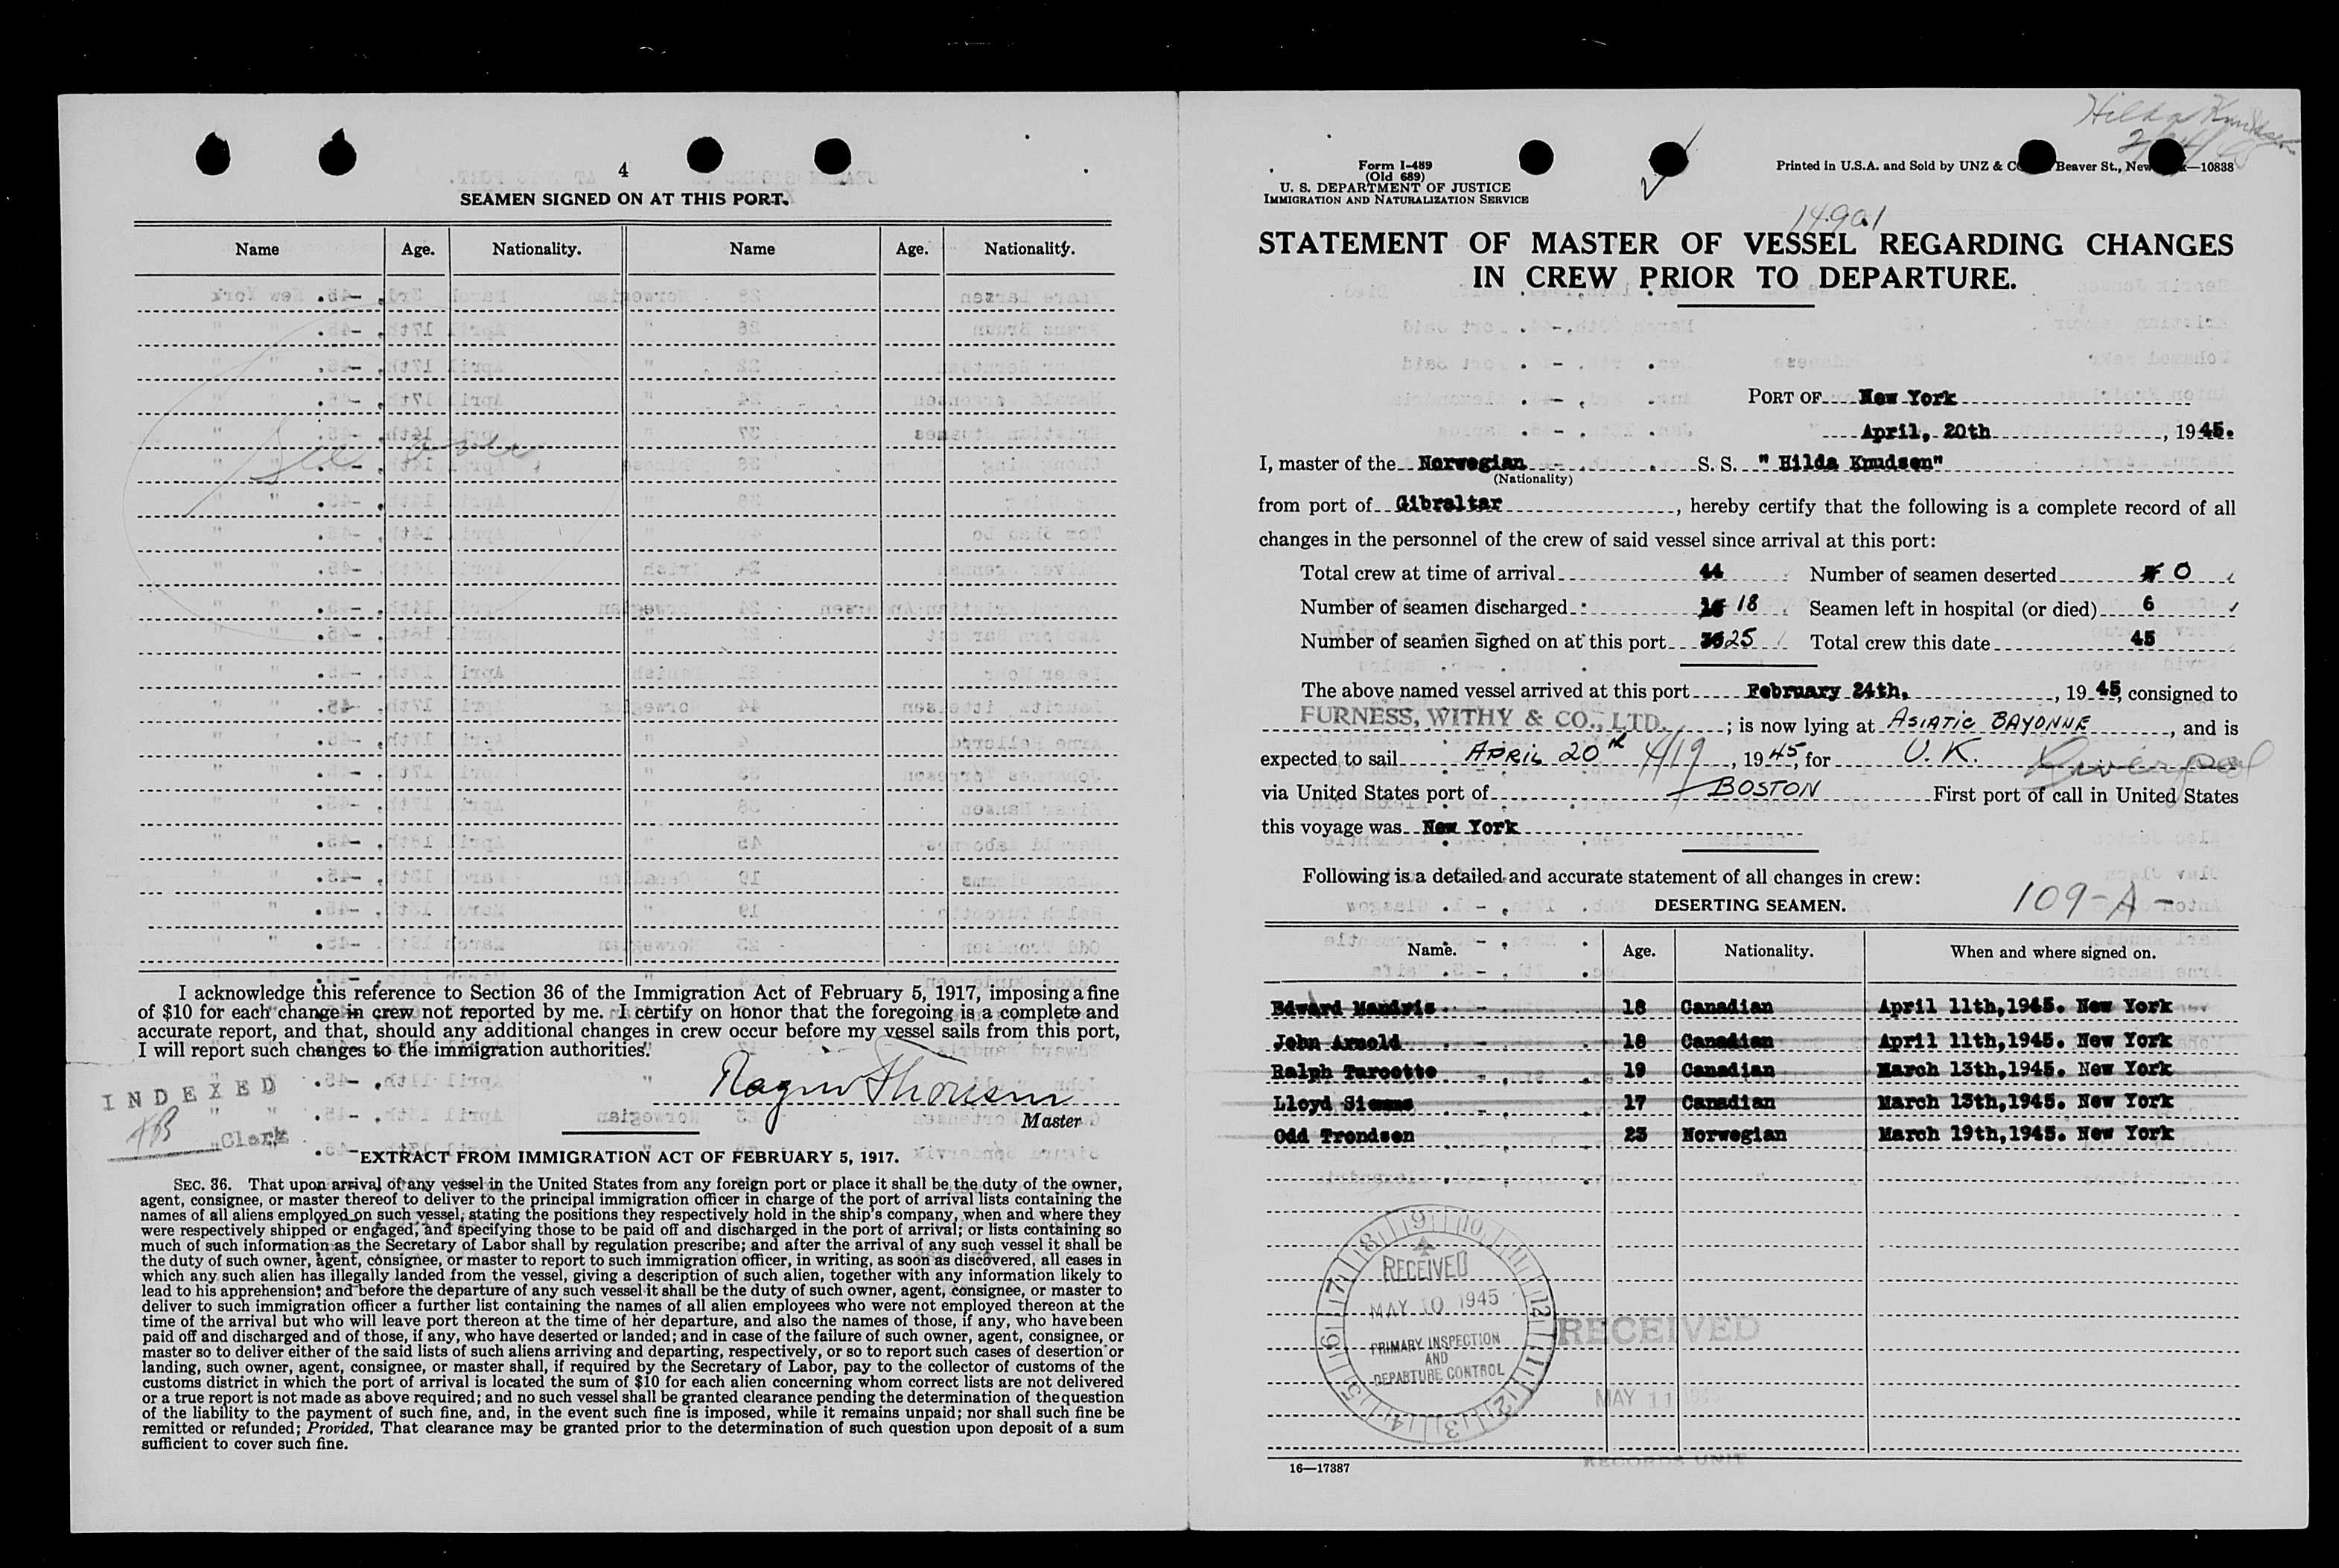 4
SEAMEN SIGNED ON AT THIS PORT.
Name Age. Nationality. Name Age. Nationality.
See over
I acknowledge this reference to Section 36 of the Immigration Act of February 5, 1917, imposing a fine
of $10 for each change in crew not reported by me. I certify on honor that the foregoing is a complete and
accurate report, and that, should any additional changes in crew occur before my vessel sails from this port,
I will report such changes to the immigration authorities.
Master
INDEXED
Clerk
EXTRACT FROM IMMIGRATION ACT OF FEBRUARY 5, 1917.
SEC. 36. That upon arrival of any vessel in the United States from any foreign port or place it shall be the duty of the owner,
agent, consignee, or master thereof to deliver to the principal immigration officer in charge of the port of arrival lists containing the
names of all aliens employed on such vessel, stating the positions they respectively hold in the ship's company, when and where they
were respectively shipped or engaged, and specifying those to be paid off and discharged in the port of arrival; or lists containing so
much of such information as the Secretary of Labor shall by regulation prescribe; and after the arrival of any such vessel it shall be
the duty of such owner, agent, consignee, or master to report to such immigration officer, in writing, as soon as discovered, all cases in
which any such alien has illegally landed from the vessel, giving a description of such alien, together with any information likely to
lead to his apprehension; and before the departure of any such vessel it shall be the duty of such owner, agent, consignee, or master to
deliver to such immigration officer a further list containing the names of all alien employees who were not employed thereon at the
time of the arrival but who will leave port thereon at the time of her departure, and also the names of those, if any, who have been
paid off and discharged and of those, if any, who have deserted or landed; and in case of the failure of such owner, agent, consignee, or
master so to deliver either of the said lists of such aliens arriving and departing, respectively, or so to report such cases of desertion or
landing, such owner, agent, consignee, or master shall, if required by the Secretary of Labor, pay to the collector of customs of the
customs district in which the port of arrival is located the sum of $10 for each alien concerning whom correct lists are not delivered
or a true report is not made as above required; and no such vessel shall be granted clearance pending the determination of the question
of the liability to the payment of such fine, and, in the event such fine is imposed, while it remains unpaid; nor shall such fine be
remitted or refunded; Provided, That clearance may be granted prior to the determination of such question upon deposit of a sum
sufficient to cover such fine.
Hilda Knudsen
Form I-489
(Old 689)
U. S. DEPARTMENT OF JUSTICE
IMMIGRATION AND NATURALIZATION SERVICE
Printed in U.S.A. and Sold by UNZ & Beaver St., —10838
14901
STATEMENT OF MASTER OF VESSEL REGARDING CHANGES
IN CREW PRIOR TO DEPARTURE.
PORT OF New York
April, 20th, 1945.
I, master of the Norwegian S. S. "Hilda Knudsen"
(Nationality)
from port of Gibraltar, hereby certify that the following is a complete record of all
changes in the personnel of the crew of said vessel since arrival at this port:
Total crew at time of arrival 44 Number of seamen deserted 0
Number of seamen discharged 18 Seamen left in hospital (or died) 6
Number of seamen signed on at this port 25 Total crew this date 45
The above named vessel arrived at this port February 24th, 1945, consigned to
FURNESS, WITHY & CO., LTD.; is now lying at ASIATIC BAYONNE, and is
expected to sail APRIL 20th 4/19, 1945, for U.K. Liverpool
via United States port of BOSTON First port of call in United States
this voyage was New York
Following is a detailed and accurate statement of all changes in crew:
109-A-
DESERTING SEAMEN.
Name. Age. Nationality. When and where signed on.
Edward Mandris 18 Canadian April 11th, 1945. New York
John Arnold 18 Canadian April 11th, 1945. New York
Ralph Turcotte 19 Canadian March 13th, 1945. New York
Lloyd Siemms 17 Canadian March 13th, 1945. New York
Odd Trondsen 23 Norwegian March 19th, 1945. New York
9 10 11 12 1 2 3 4 5 6 7 8
RECEIVED
MAY 10 1945
PRIMARY INSPECTION
AND
DEPARTURE CONTROL
RECEIVED
MAY 11 1945
RECORDS UNIT
16—17387